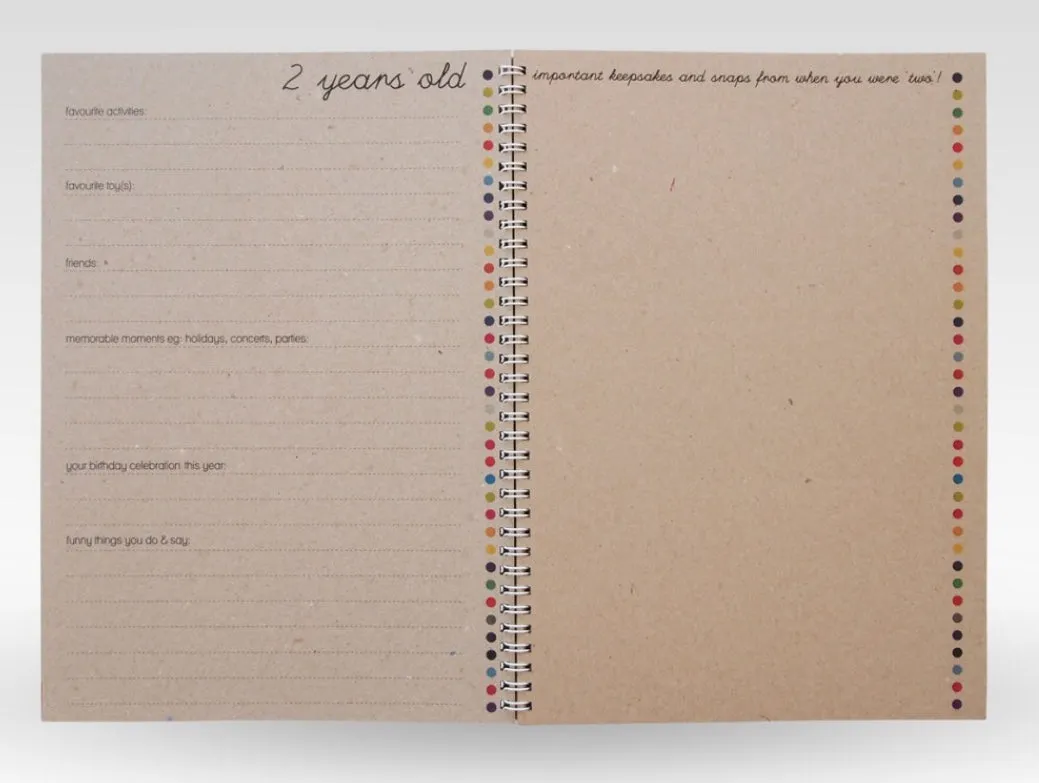 2 years old
favourite activities:
favourite toy(s):
friends:
memorable moments eg: holidays, concerts, parties:
your birthday celebration this year:
funny things you do & say:
important keepsakes and snaps from when you were 'two'!